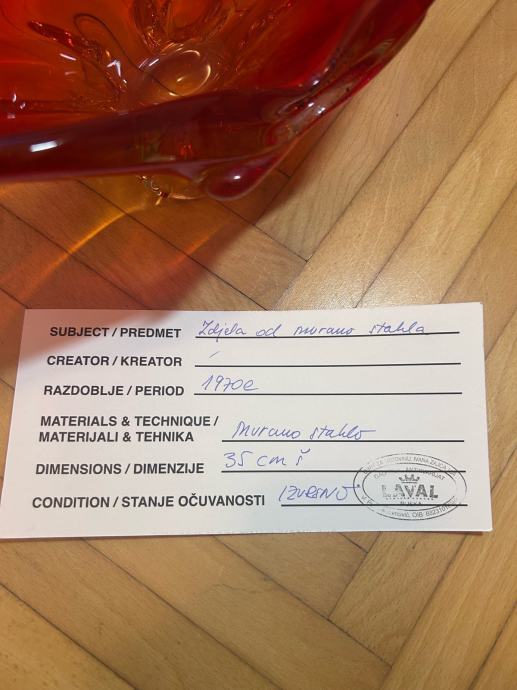 SUBJECT / PREDMET Zdjela od murano stakla
CREATOR / KREATOR /
RAZDOBLJE / PERIOD 1970e
MATERIALS & TECHNIQUE /
MATERIJALI & TEHNIKA Murano staklo
DIMENSIONS / DIMENZIJE 35 cm š
CONDITION / STANJE OČUVANOSTI IZVRSNO
LAVAL